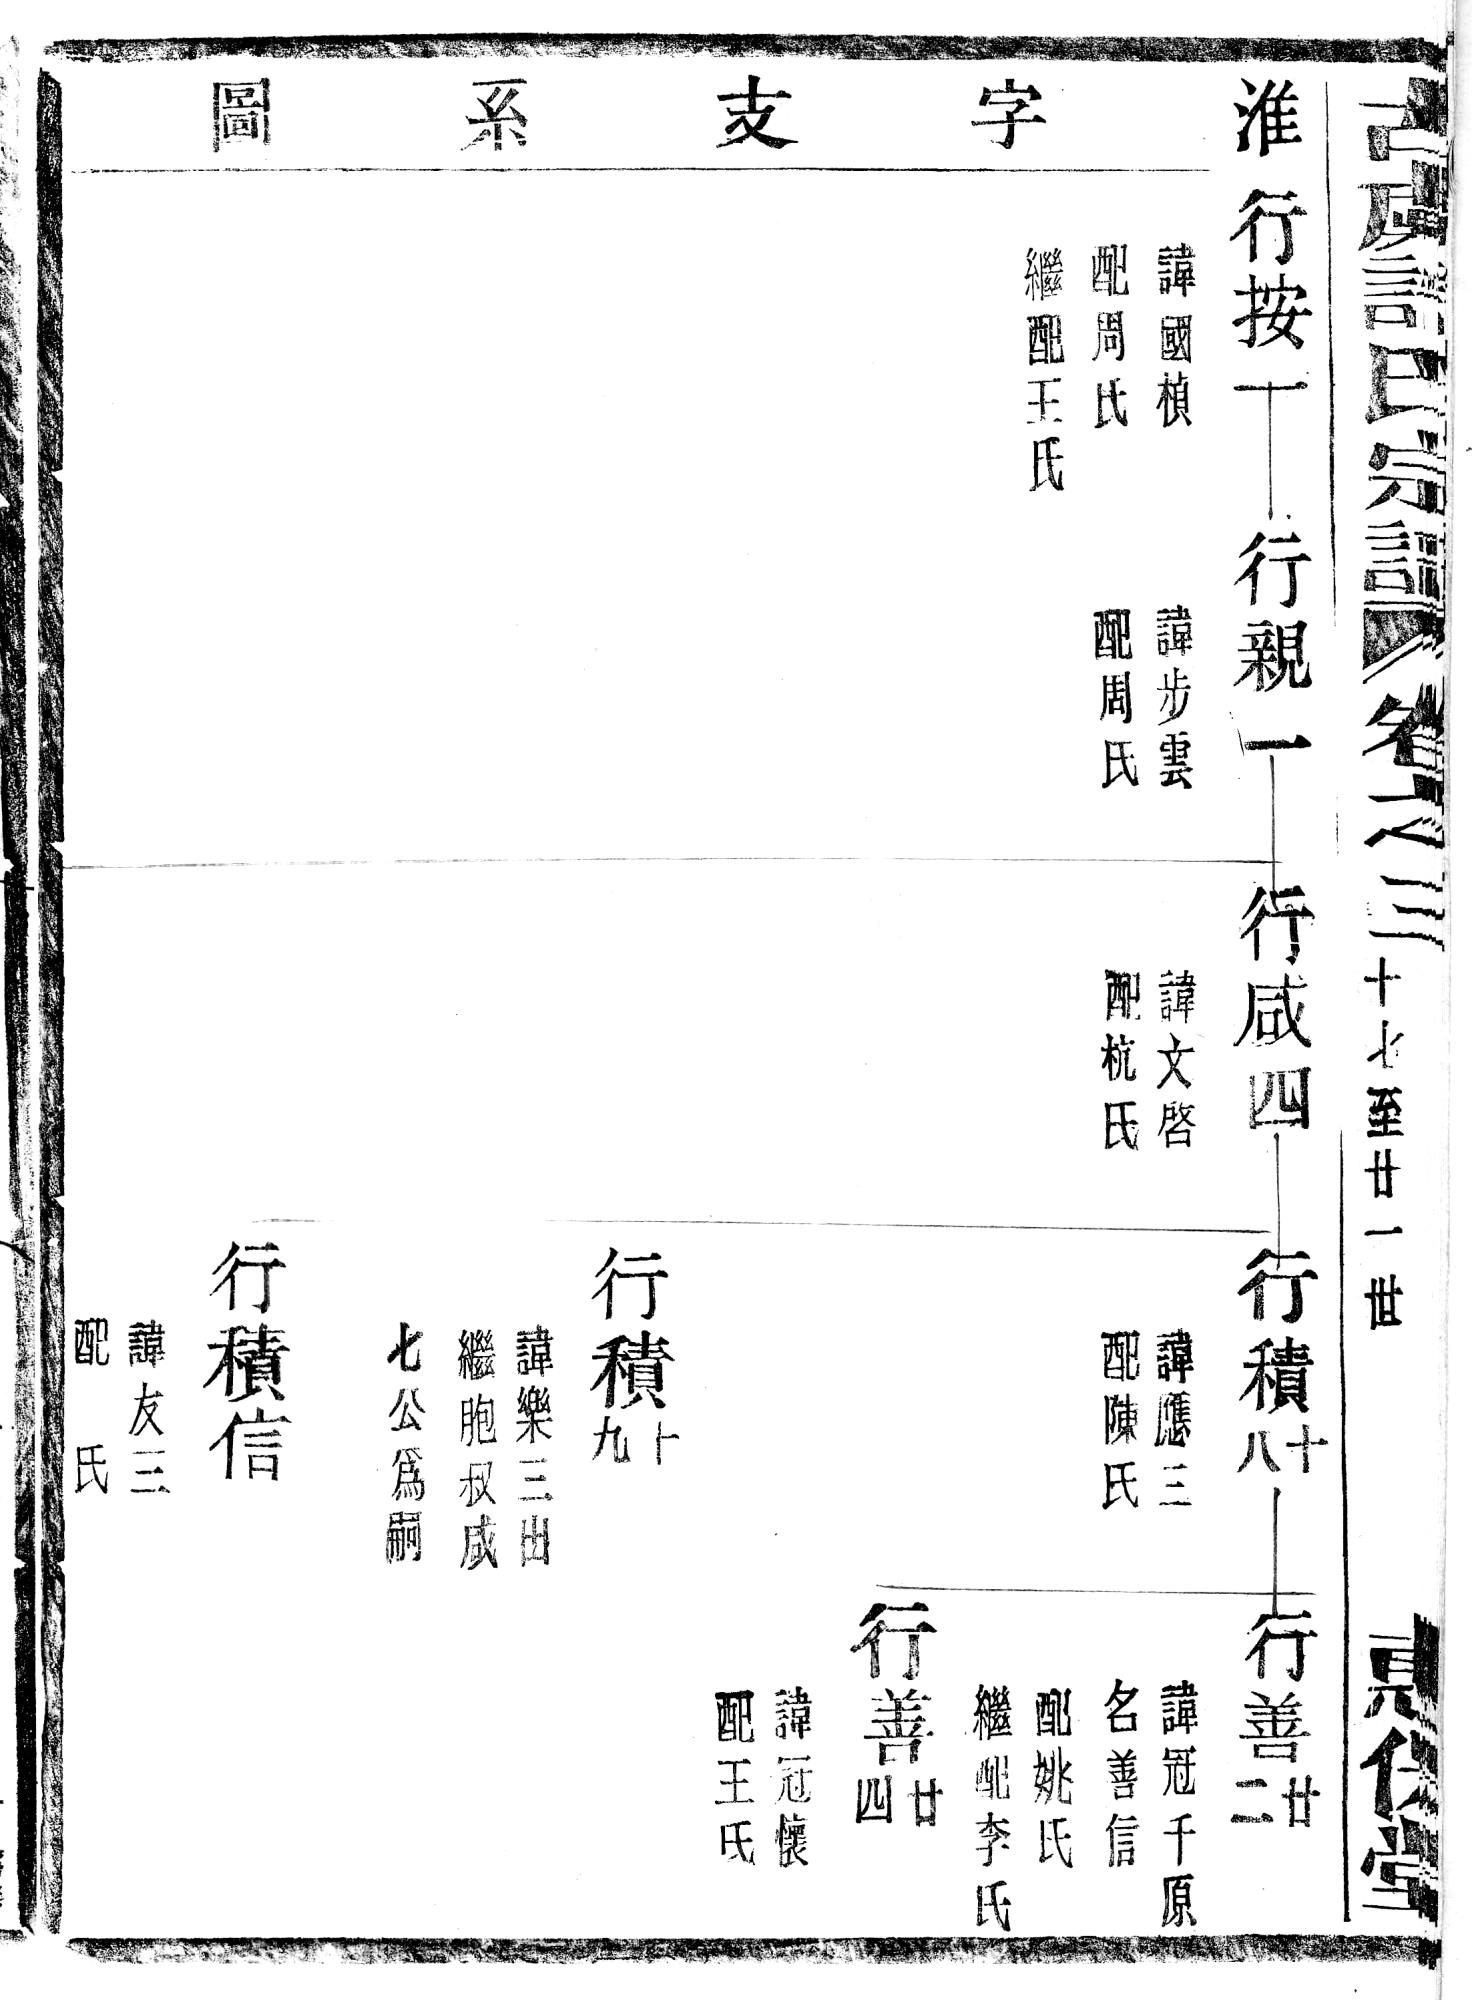 卷之三
十七至廿一世
淮字支系圖
行按一
諱國楨
配周氏
繼配王氏
行親一
諱步雲
配周氏
行咸四
諱文啓
配杭氏
行積十八
諱應三
配陳氏
行積十九
諱樂三出
繼胞叔咸
七公爲嗣
行積信
諱友三
配 氏
行善廿二
諱冠千原
名善信
配姚氏
繼配李氏
行善廿四
諱冠懷
配王氏